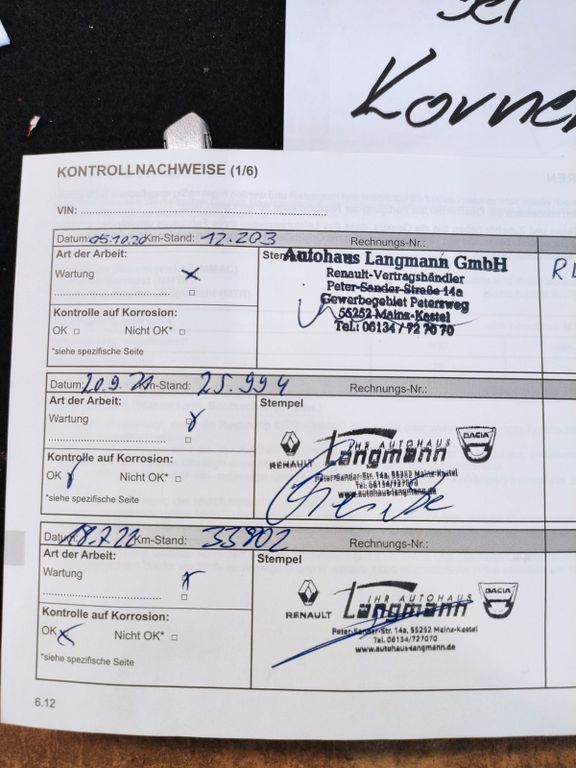 Korner
KONTROLLNACHWEISE (1/6)
VIN:
Datum: 05.10.20 Km-Stand: 12.203 Rechnungs-Nr.:
Art der Arbeit: Stem
Wartung
Kontrolle auf Korrosion:
OK Nicht OK*
*siehe spezifische Seite
Autohaus Langmann GmbH
Renault-Vertragshändler
Peter-Sander-Straße 14a
Gewerbegebiet Petersweg
55252 Mainz-Kastel
Tel.: 06134 / 72 70 70
Datum: 20.9.21 Km-Stand: 25.994 Rechnungs-Nr.:
Art der Arbeit: Stempel
Wartung
Kontrolle auf Korrosion:
OK Nicht OK*
*siehe spezifische Seite
RENAULT
IHR AUTOHAUS
Langmann
DACIA
Peter-Sander-Str. 14a, 55252 Mainz-Kastel
Tel. 06134/727070
www.autohaus-langmann.de
Datum: 18.7.22 Km-Stand: 33902 Rechnungs-Nr.:
Art der Arbeit: Stempel
Wartung
Kontrolle auf Korrosion:
OK Nicht OK*
*siehe spezifische Seite
RENAULT
IHR AUTOHAUS
Langmann
DACIA
Peter-Sander-Str. 14a, 55252 Mainz-Kastel
Tel. 06134/727070
www.autohaus-langmann.de
6.12